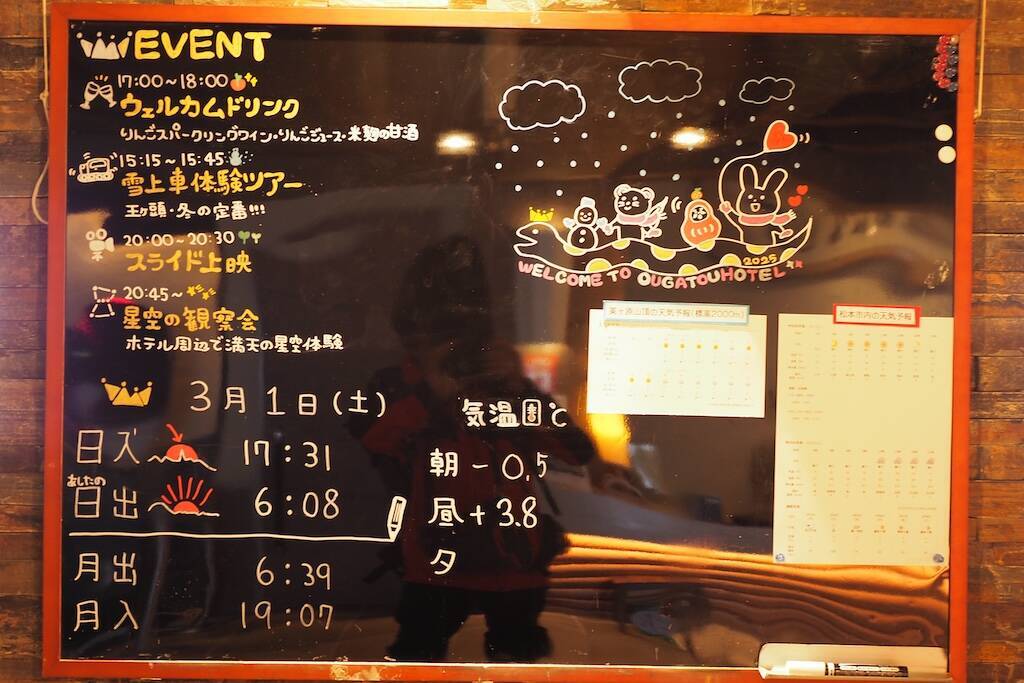 EVENT
17:00~18:00
ウェルカムドリンク
りんごスパークリングワイン・りんごジュース・米麹の甘酒
15:15~15:45
雪上車体験ツアー
王ヶ頭・冬の定番!!!
20:00~20:30
スライド上映
20:45~
星空の観察会
ホテル周辺で満天の星空体験
WELCOME TO OUGATOUHOTEL
2025
美ヶ原山頂の天気予報(標高2000m)
松本市内の天気予報
3月1日(土)
日入 17:31
あしたの
日出 6:08
月出 6:39
月入 19:07
気温 ℃
朝 -0.5
昼 +3.8
夕